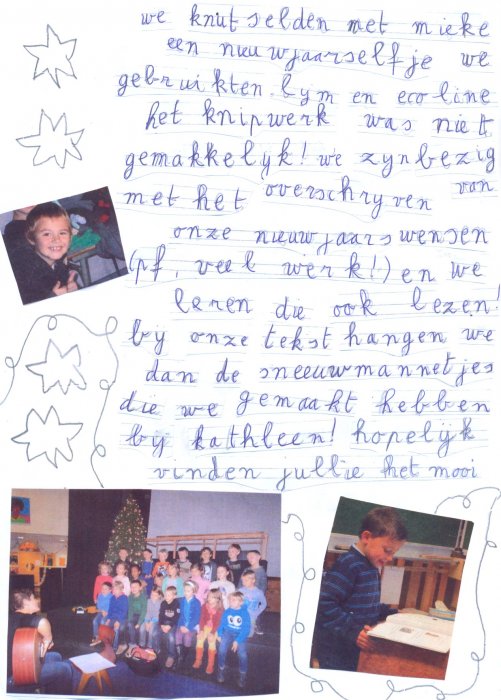 we knutselden met mieke
een nieuwjaarselfje we
gebruikten lym en ecoline
het knipwerk was niet
gemakkelyk! we zyn bezig
met het overschryven van
onze nieuwjaarswensen
(pf, veel werk!) en we
leren die ook lezen!
by onze tekst hangen we
dan de sneeuwmannetjes
die we gemaakt hebben
by kathleen! hopelyk
vinden jullie het mooi